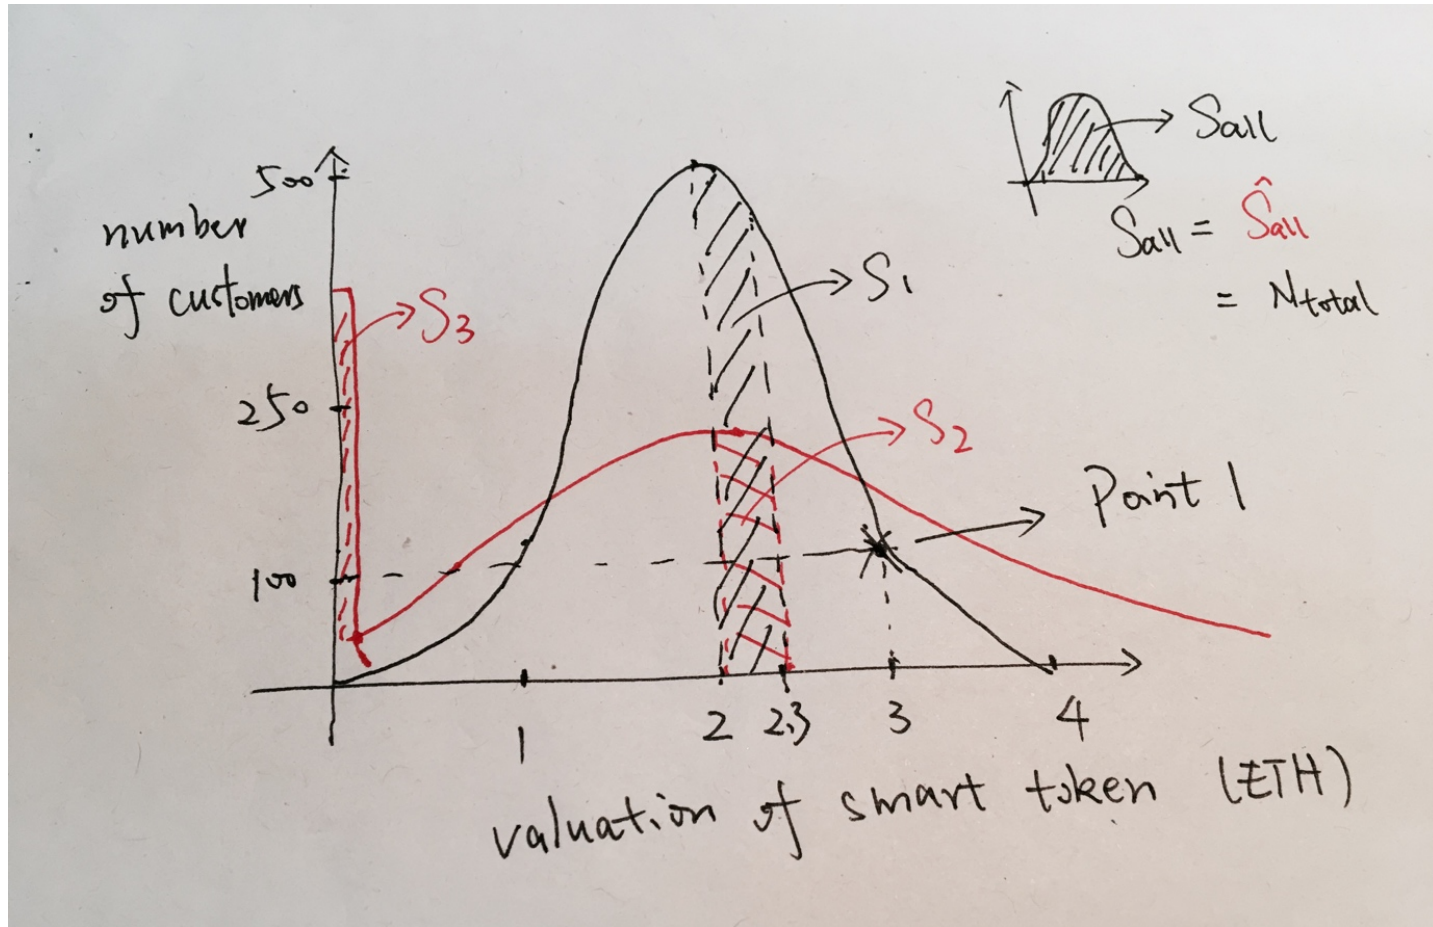 500
number
of customers
250
100
S3
S1
S2
Point 1
Sall
Sall = Ŝall
= Mtotal
1
2
2.3
3
4
valuation of smart token (ETH)